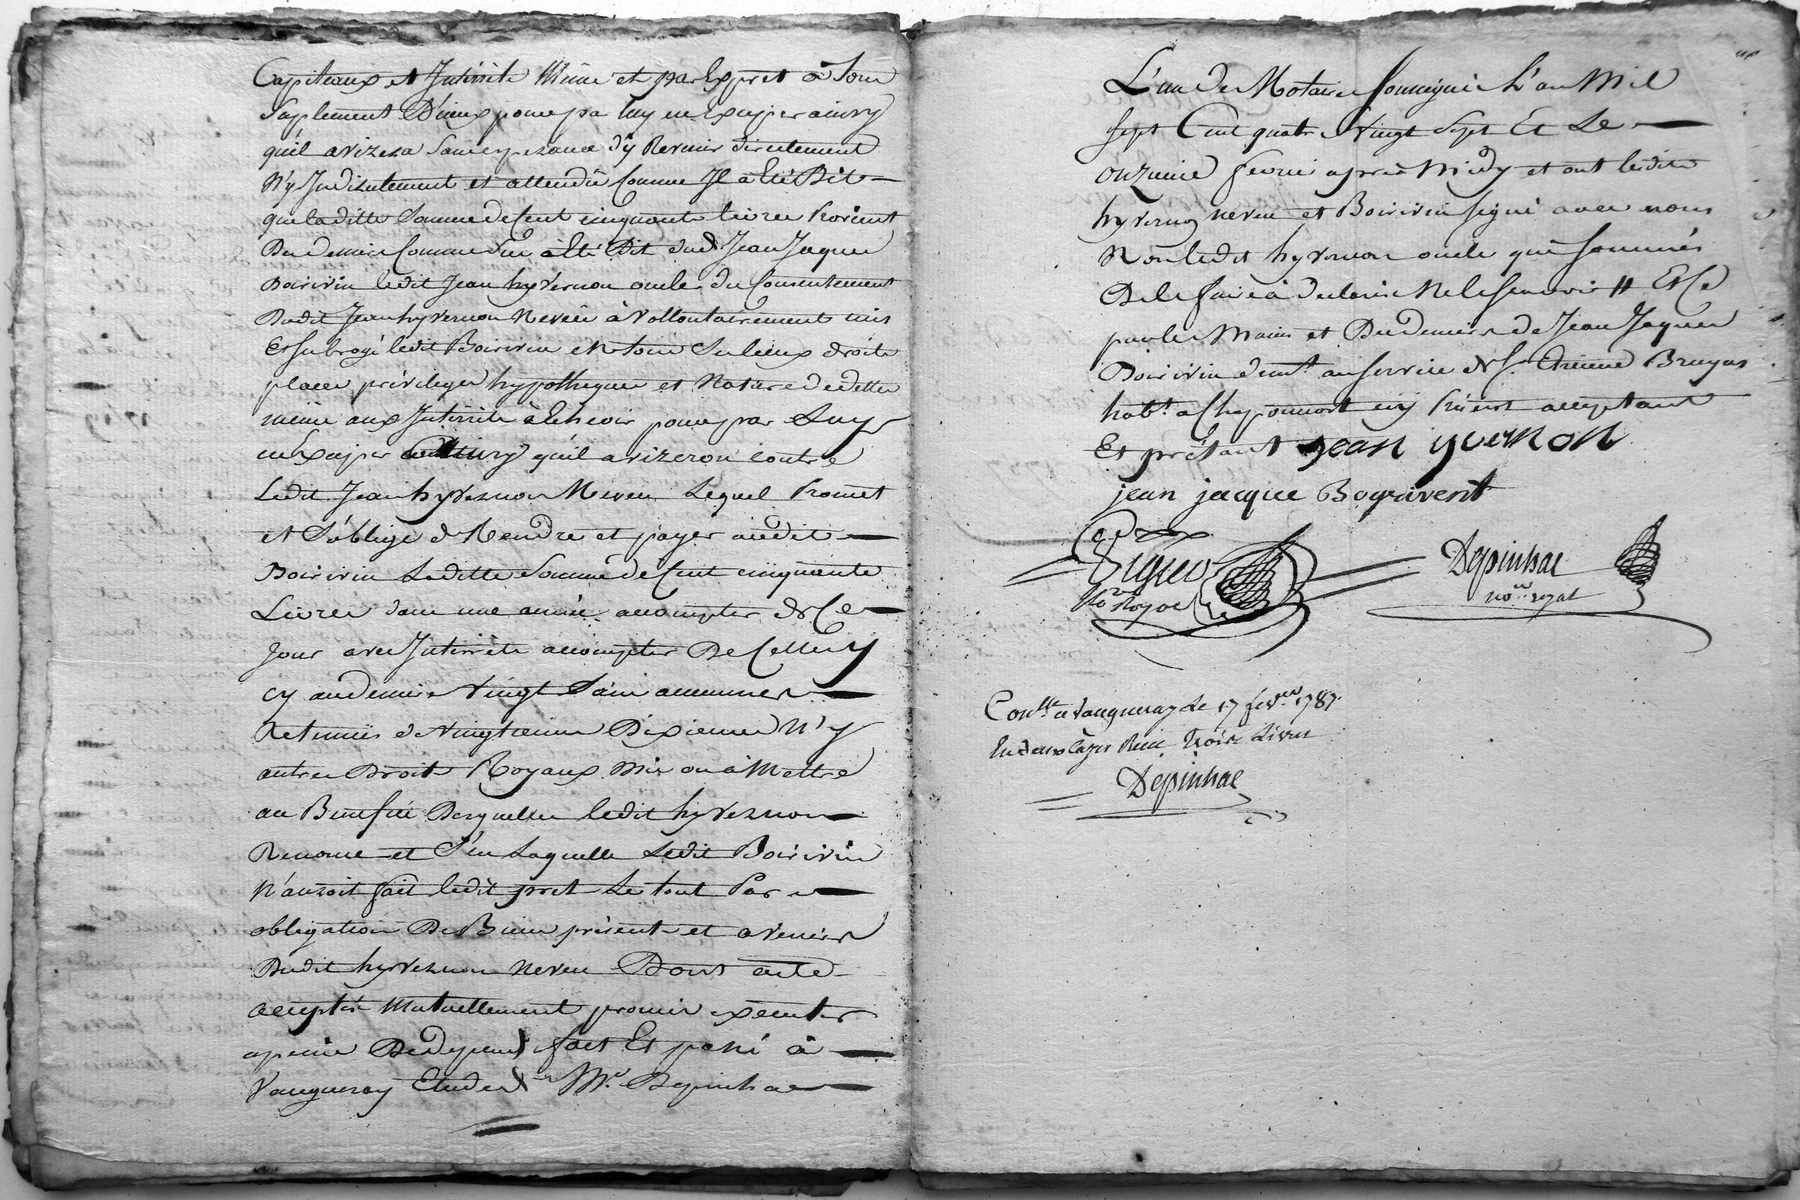 Capiteaux et Interrêts Même et par Expret à Son
Suplement D'iceux pour par luy en Exiger ainsy
qu'il avizera Sans Esperance d'y Revenir directement
N'y Indirectement et attendû Comme Il a Eté Dit
que la ditte Somme de Cent cinquante livres Provient
Des deniers Comme Il a Eté Dit dud Jean Jaques
Boirivin ledit Jean hyvernon oncle du Consentement
Dudit Jean hyvernon Neveu à Vollontairement mis
Et Subrogé ledit Boirivin En tous Ses lieux droits
places privileges hypotheques et Nature de dettes
même aux Interrêts à Echeoir pour par Luy
en Exiger qu'il avizeron contre
Ledit Jean hyvernon Neveu Lequel Promet
et S'oblige de Rendre et payer audit
Boirivin Laditte Somme de Cent cinquante
Livres dans une année acompter de Ce
Jour avec Interrêts acompter De Celluy
cy au denier Vingt Sans aucunnes
Retenües de Vingtieme Dixiemes N'y
autres Droits Royaux Mis ou à Mettre
au Benefice Desquelles ledit hyvernon
Renonce et Sans Laquelle Ledit Boirivin
N'auroit fait ledit pret Le tout Par
obligation De Biens présents et avenirs
Dudit hyvernon neveu Dont acte
accepté Mutuellement promis exécuter
apeine De dépens fait Et passé à
Vaugneray Etude de Me. Depinhac
L'un des Notaires Soussignés L'an Mil
Sept Cent quatre Vingt Sept Et Le
onzieme fevrier après Midy et ont lesdits
hyvernon neveu et Boirivin Signé avec nous
Non ledit hyvernon oncle qui Sommés
De le faire à declaré Ne le Scavoir # Et Ce
par les Mains et Des deniers de Jean Jaques
Boirivin domt. au Service de S. Etienne Bruyas
habt. a Chaponnost icy Présent acceptant
Et prétant Jean yvernon
jean jacque Boyrivent
Vigier
No.re Royal
Depinhac
no.re royal
Conllé. a Vaugneray le 17 fevrer 1787.
En deux Pages Reçu Trois Livres
Depinhac